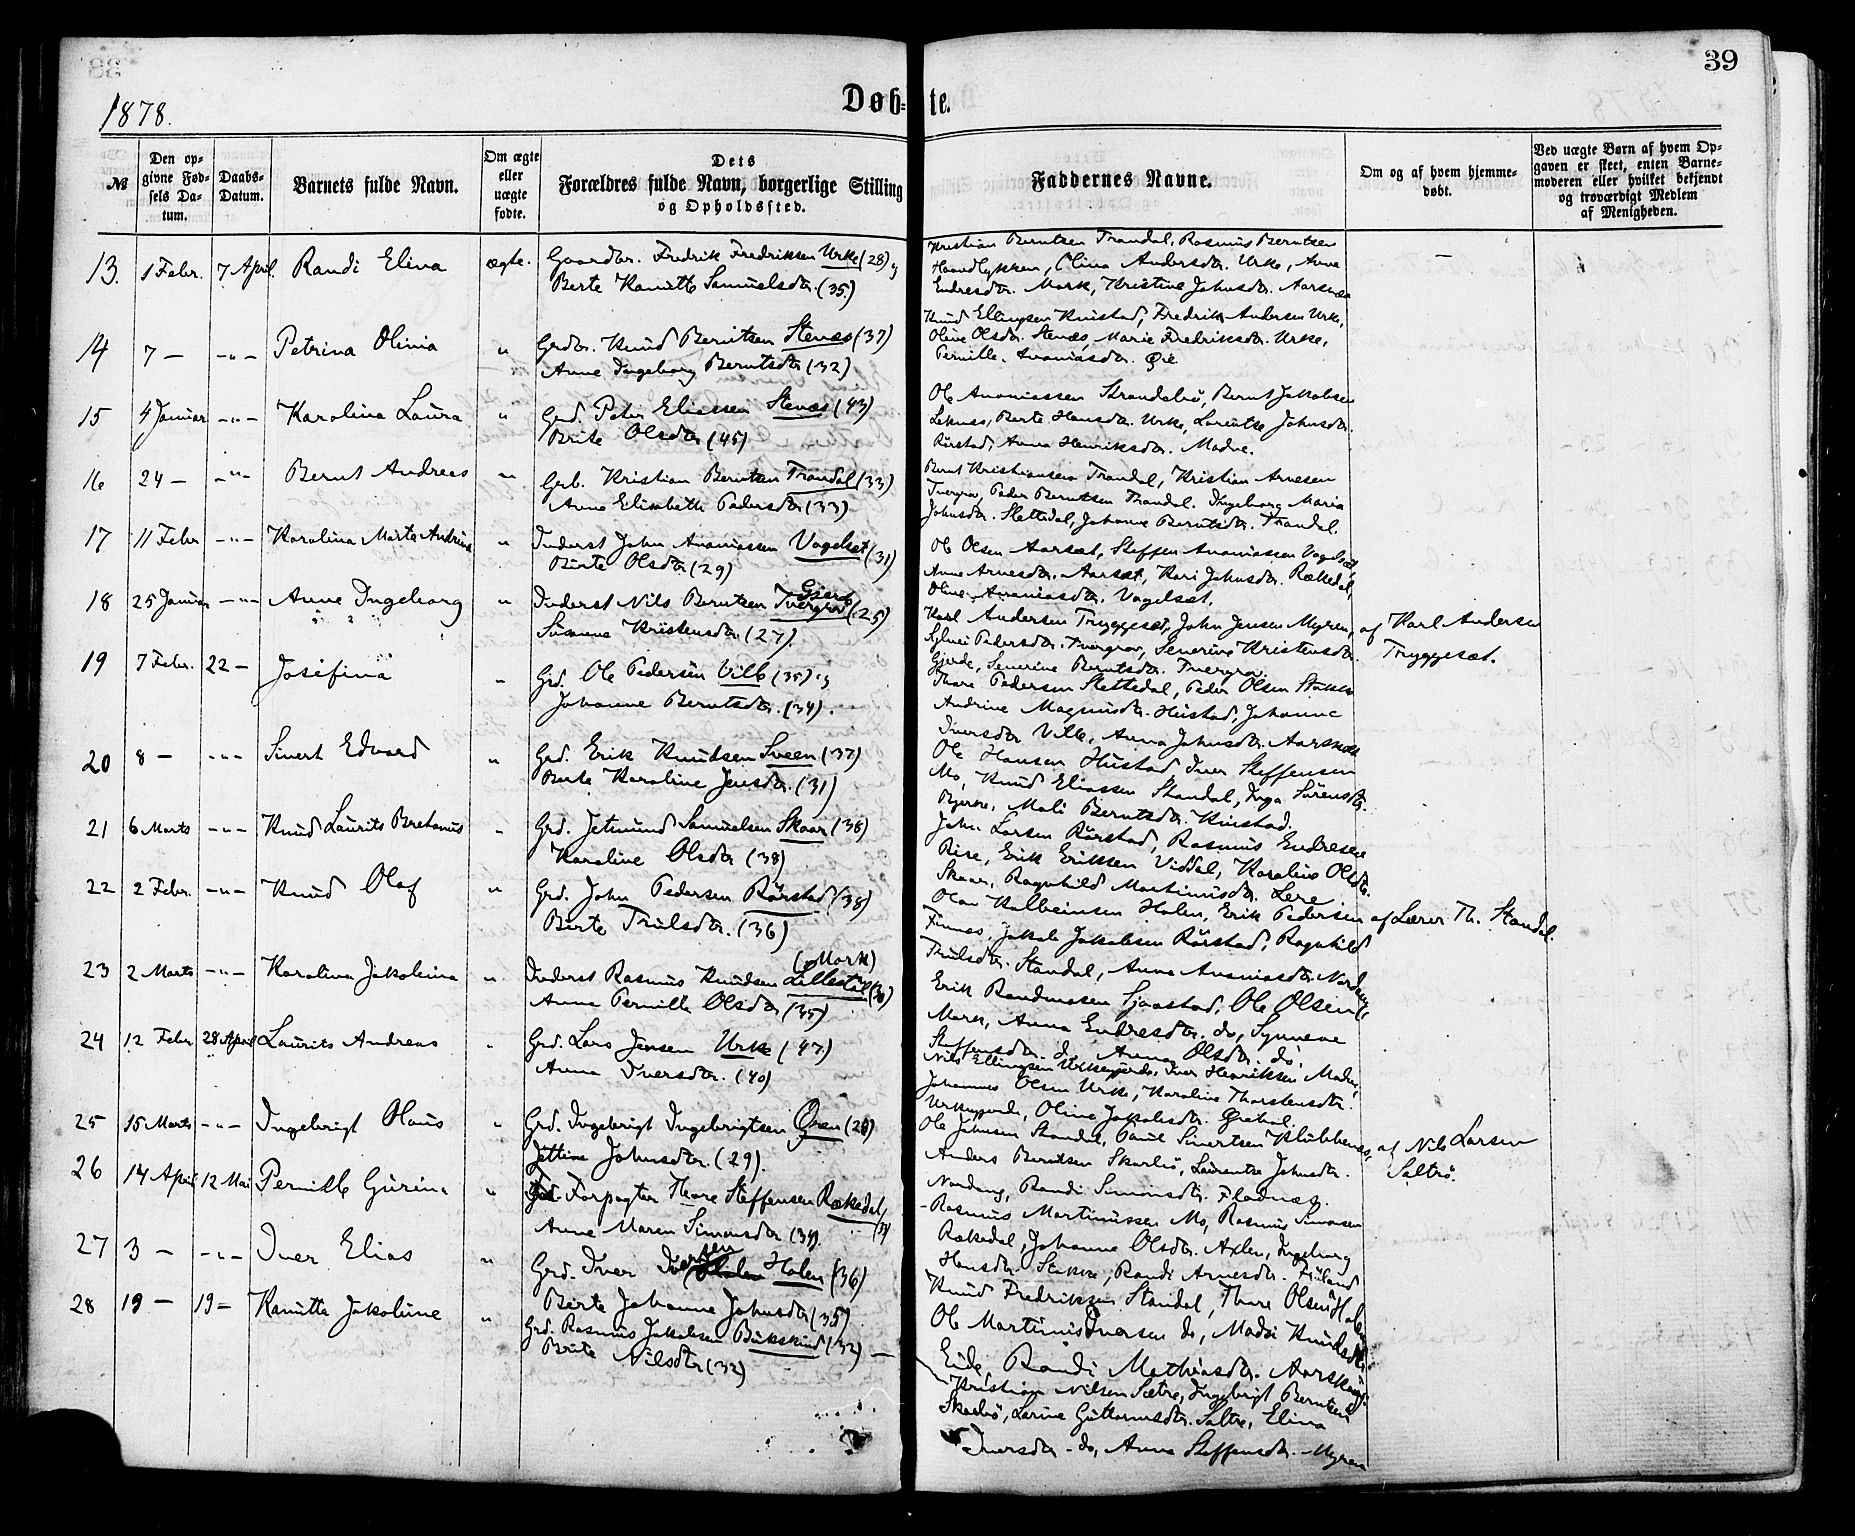 39
1878.
Døb-te.
№
Den opgivne Fødsels Datum.
Daabs-Datum.
Barnets fulde Navn.
Om ægte eller uægte fødte.
Dets Forældres fulde Navn, borgerlige Stilling og Opholdssted.
Faddernes Navne.
Om og af hvem hjemmedøbt.
Ved uægte Børn af hvem Opgaven er skeet, enten Barnemoderen eller hvilket bekjendt og troværdigt Medlem af Menigheden.
13. 1 Febr. 7 April. Randi Elina ægte. Gaardbr. Fredrik Fredriksen Urke (28) og
Berte Kanutte Samuelsdtr. (35)
Kristian Berntsen Trandal, Rasmus Berntsen
Haandlykken, Olina Andersdtr. Urke, Anne
Endresdtr. Mork, Kristine Johnsdtr. Aarsnes
14 7 — -"- Petrina Olivia " Grdbr. Knud Berntsen Stenæs (37)
Anne Ingeborg Berntsdtr (32)
Knud Ellingsen Knistad, Fredrik Andersen Urke,
Oline Olsdtr. Stenæs, Marie Fredriksdtr. Urke,
Pernille Ananiasdtr. Øie
15 4 Januar -"- Karolina Laura " Grd. Peter Eliassen Stenæs (43)
Brite Olsdtr (45)
Ole Ananiassen Strandabø, Bernt Jakobsen
Leknes, Berte Hansdtr. Urke, Laurentse Johnsdtr.
Rørstad, Anna Henriksdtr. Madve.
16 24 — -"- Bernt Andreas " Grb. Kristian Berntsen Trandal (33)
Anne Elisabeth Pedersdtr (33)
Bernt Kristiansen Trandal, Kristian Arnesen
Tvergrov, Peder Berntsen Trandal. Ingeborg Maria
Johnsdtr. Slettedal, Johanne Berntsdtr. Trandal.
17 11 Febr -"- Karolina Marta Andrina " Inderst John Ananiassen Vagelsæt (31)
Birte Olsdtr (29)
Ole Olsen Aarsæt, Steffen Ananiassen Vagelsæt,
Anne Arnesdtr. Aarsæt, Kari Johnsdtr. Rækedal,
Oline Ananiasdtr. Vagelsæt.
18 25 Januar -"- Anne Ingeborg " Inderst Nils Berntsen Tvergrov (25)
Susanna Kristensdtr. (27)
Karl Andersen Tryggesæt, John Jensen Myren,
Sylvei Pedersdtr. Tvergrov, Severine Kristensdtr.
Gjerde, Severine Berntsdtr. Tvergrov.
af Karl Andersen
Tryggesæt.
19 7 Febr. 22 — Josefina " Grd. Ole Pedersen Ville (35) og
Johanne Berntsdtr. (34).
Thore Pedersen Slettedal, Peder Olsen Stakke
Andrine Magnusdtr. Hustad, Johanne
Iversdtr Ville, Anna Johnsdtr. Aarskog
20 8 — -"- Sivert Edvard " Grd. Erik Knudsen Sveen (37)
Berte Karoline Jensdtr. (31)
Ole Hansen Hustad Iver Steffensen
Mo, Knud Eliassen Standal, Inga Sørensdtr.
Bjerke, Mali Berntsdtr. Knistad.
21 6 Marts -"- Knud Laurits Bretanus " Grd. Jetmund Samuelsen Skaar (38)
Karoline Olsdtr (38)
John Larsen Rørstad, Rasmus Endresen
Rise, Erik Eriksen Viddal, Karolius Olsdtr.
Skaar, Ragnhild Martinusdtr. Lere
22 2 Febr. -"- Knud Olaf " Grd. John Pedersen Rørstad (38)
Berte Trulsdtr. (36)
Olav Kolbeinsen Holen, Erik Pedersen
Finnes, Jakob Jakobsen Rørstad, Ragnhild
Trulsdtr. Standal, Anne Ananiasdtr. Nordang
af Lærer Th. Standal.
23 2 Marts -"- Karolina Jakobina " Inderst Rasmus Knudsen Lillestøl (30)
(Mork)
Anne Pernille Olsdtr (35)
Erik Rasmussen Sjaastad, Ole Olsen
Maren, Anna Endresdtr. do, Synneve
Steffensdtr. do Anna Olsdtr. do
24 12 Febr 28 April Laurits Andreas " Grd. Lars Jensen Urke (47)
Anna Iversdtr. (40)
Nils Ellingsen Urkegjerde, Iver Henriksen Madve,
Johannes Olsen Urke, Karoline Thorstensdtr.
Urkegjerde, Oline Jakobsdtr. Grøhol.
25 15 Marts -"- Ingebrigt Olaus " Grd. Ingebrigt Ingebrigtsen Øren (28)
Jettine Johnsdtr. (29).
Ole Johnsen Standal, Paul Sivertsen Klubbenes,
Anders Berntsen Skarbø, Laurentse Johnsdtr.
Nordang, Randi Simonsdtr. Fladnæs.
af Nils Larsen
Saltrø.
26 14 April 12 Mai Pernille Gurina " Forpagter Thore Steffensen Rækedal,
Anne Maren Simonsdtr (34).
Rasmus Martinussen Mo, Rasmus Simonsen
Rækedal, Johanne Olsdtr. Axlen, Ingeborg
Hansdtr. Stakke, Randi Arnesdtr. Fuland
27 3 — -"- Iver Elias " Grd. Iver Iversen Holen (36)
Berte Johanne Johnsdtr (35)
Knud Fredriksen Standal, Thore Olsen Holen
Ole Martinus Iversen do, Madsi Knudsdtr.
Eide, Randi Mathiasdtr. Aarskog
28 19 — 19 = Kanutte Jakobine " Grd. Rasmus Jakobsen Bukskind (32) —
Brite Nilsdtr (32)
Kristian Nilsen Sætre, Ingebrigt Berntsen
Skarbø, Larine Guttormsdtr. Saltre, Elina
Iversdtr - do, Anne Steffensdtr. Myren